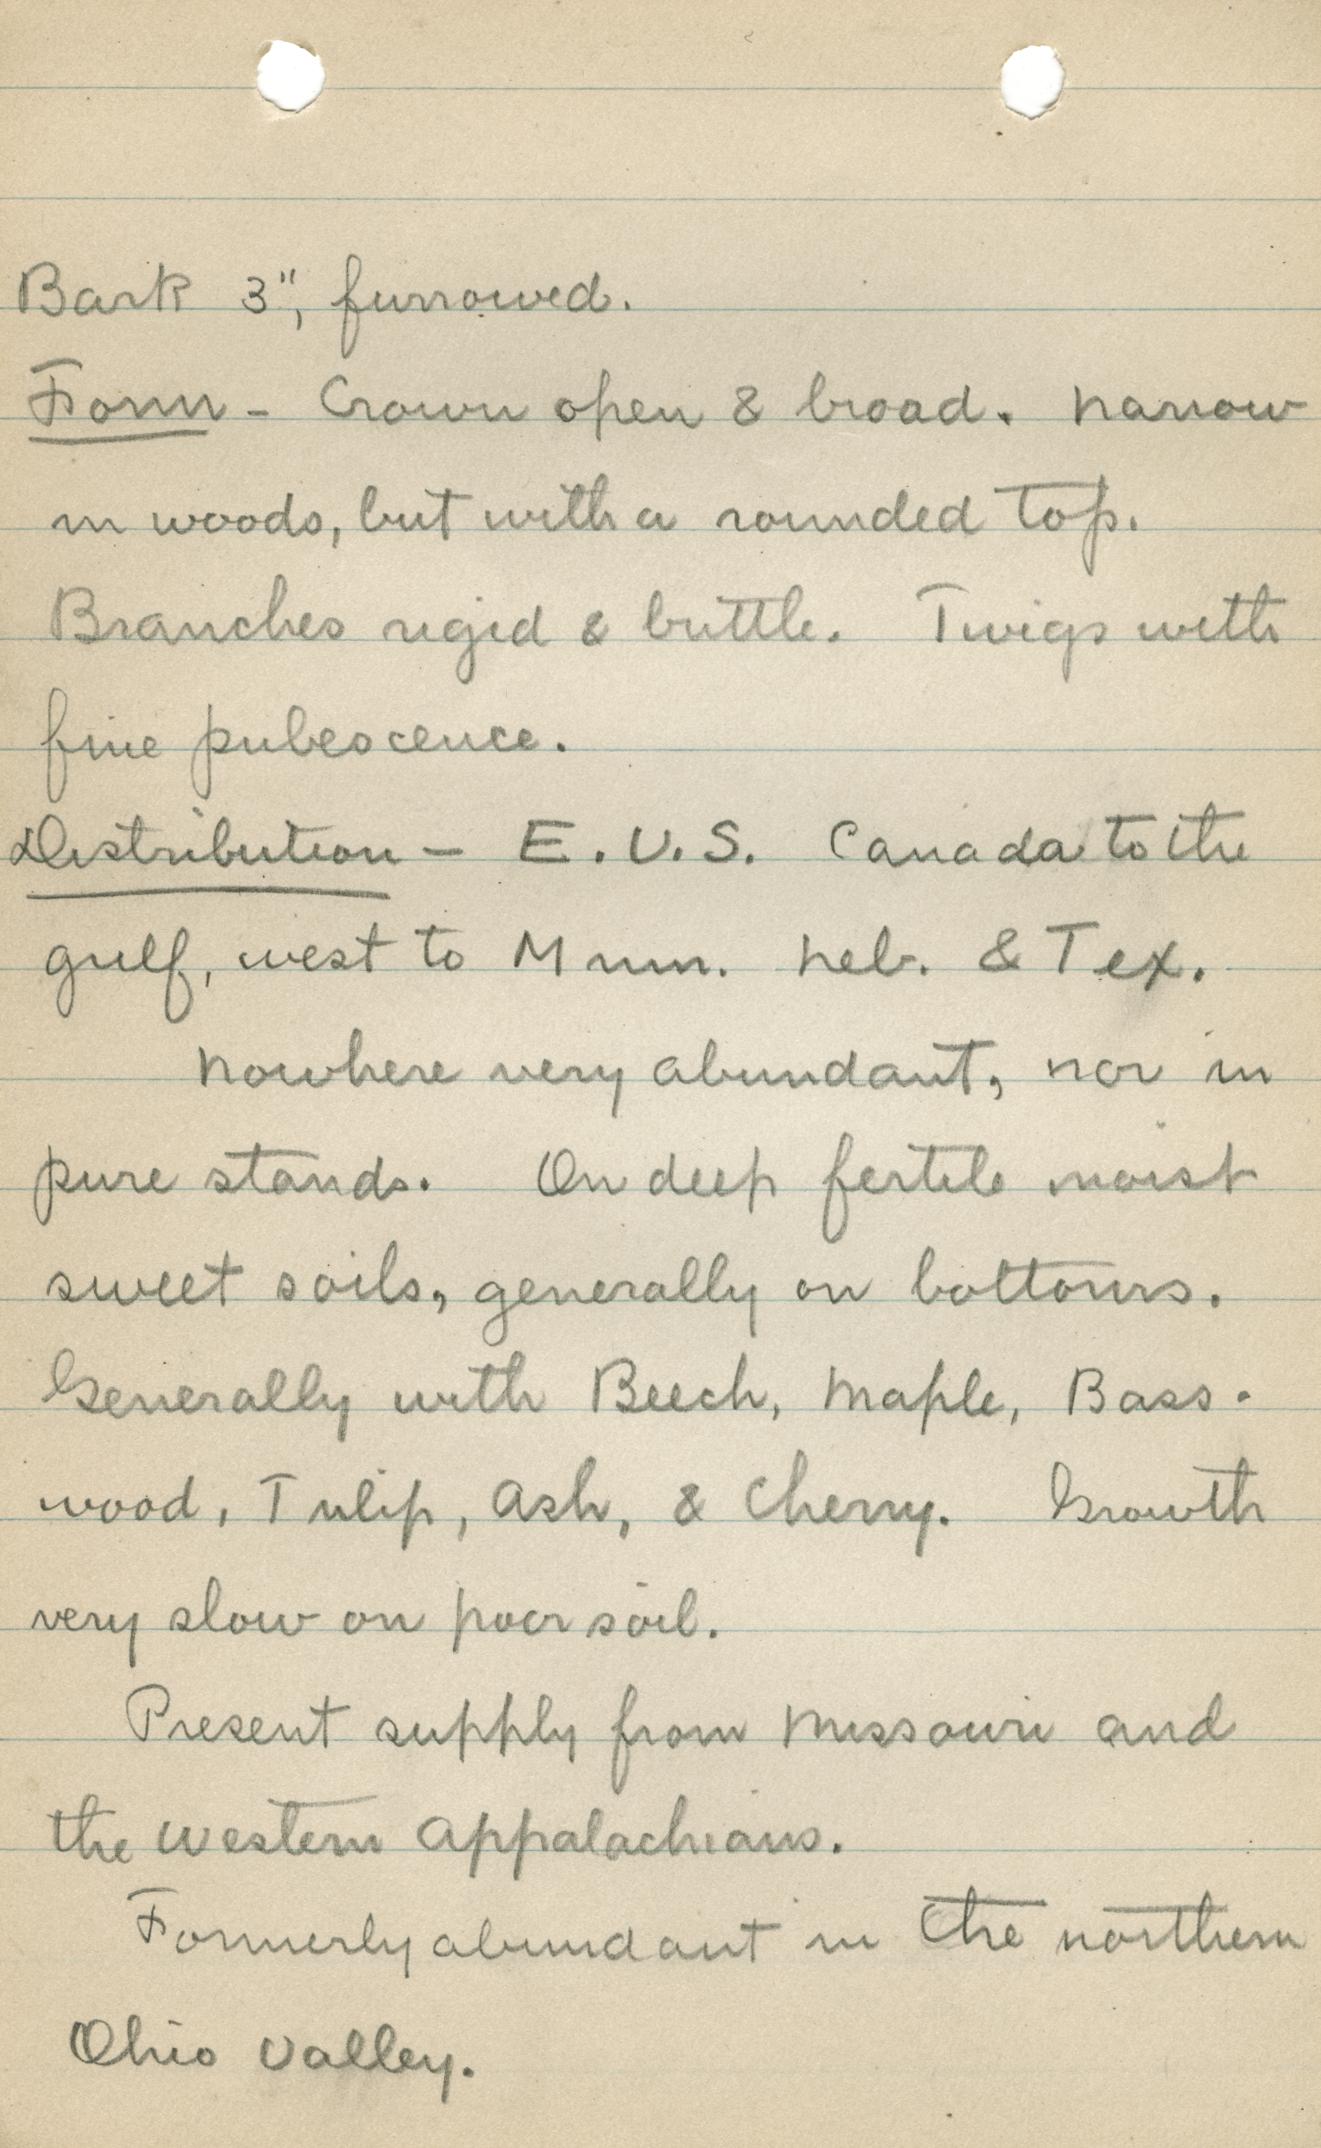 Bark 3", furrowed.
Form - Crown open & broad. Narrow
in woods, but with a rounded top.
Branches rigid & brittle. Twigs with
fine pubescence.
Distribution - E. U. S. Canada to the
gulf, west to Minn. Neb. & Tex.
Nowhere very abundant, nor in
pure stands. On deep fertile moist
sweet soils, generally on bottoms.
Generally with Beech, Maple, Bass-
wood, Tulip, Ash, & Cherry. Growth
very slow on poor soil.
Present supply from Missouri and
the Western Appalachians.
Formerly abundant in the northern
Ohio Valley.